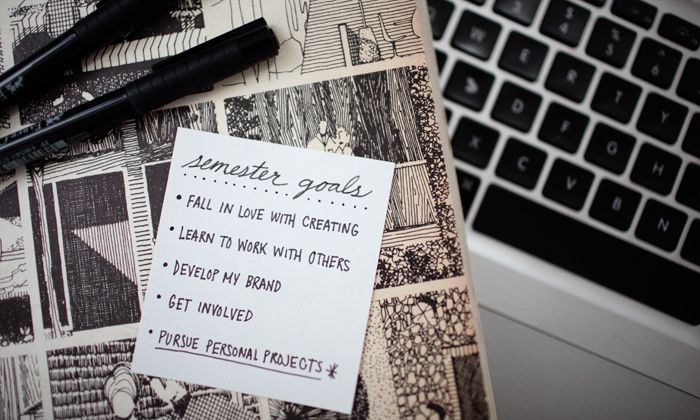 semester goals
• FALL IN LOVE WITH CREATING
• LEARN TO WORK WITH OTHERS
• DEVELOP MY BRAND
• GET INVOLVED
• PURSUE PERSONAL PROJECTS *
$ 4
% 5
^ 6
W E R T Y
S D F G H
X C V B N